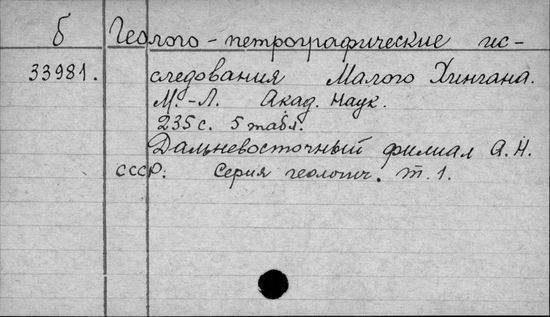 Б Геолого-петрографические ис-
33981. следования Малого Хингана.
М.-Л. Акад. Наук.
235 с. 5 табл.
Дальневосточный филиал А.Н.
СССР. Серия геологич. т. 1.